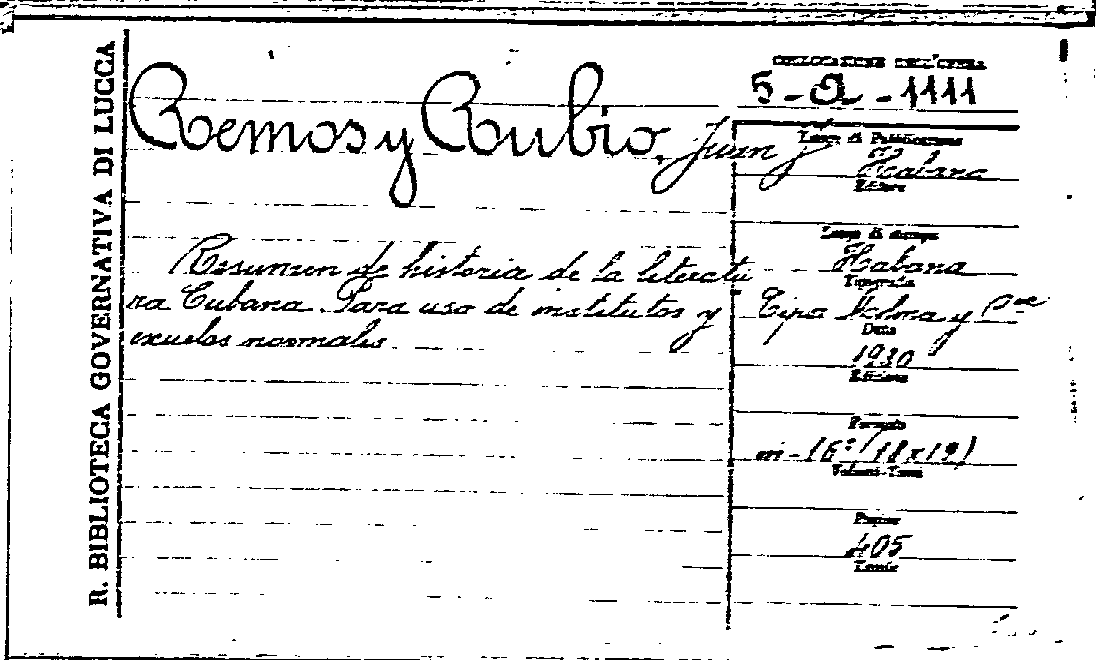 R. BIBLIOTECA GOVERNATIVA DI LUCCA
COLLOCAZIONE DELL'OPERA
5-Q-1111
Remos y Rubio, Juan J.
Luogo di Pubblicazione
Habana
Editore
Luogo di stampa
Habana
Tipografia
Tipo Molina y Cia
Data
1930
Edizione
Formato
in-16°/(18x12)
Volumi-Tomi
Pagine
405
Tavole
Resumen de historia de la literatu
ra Cubana. Para uso de institutos y
escuelas normales.